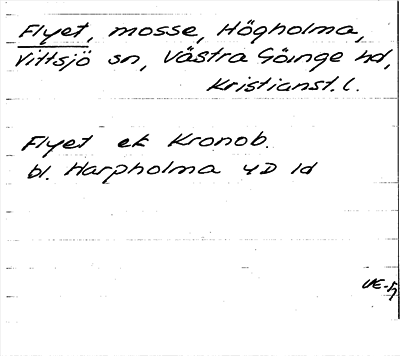 Flyet, mosse, Högholma,
Vittsjö sn, Västra Göinge hd,
Kristianst. l.
Flyet ek Kronob.
bl. Harpholma 4D 1d